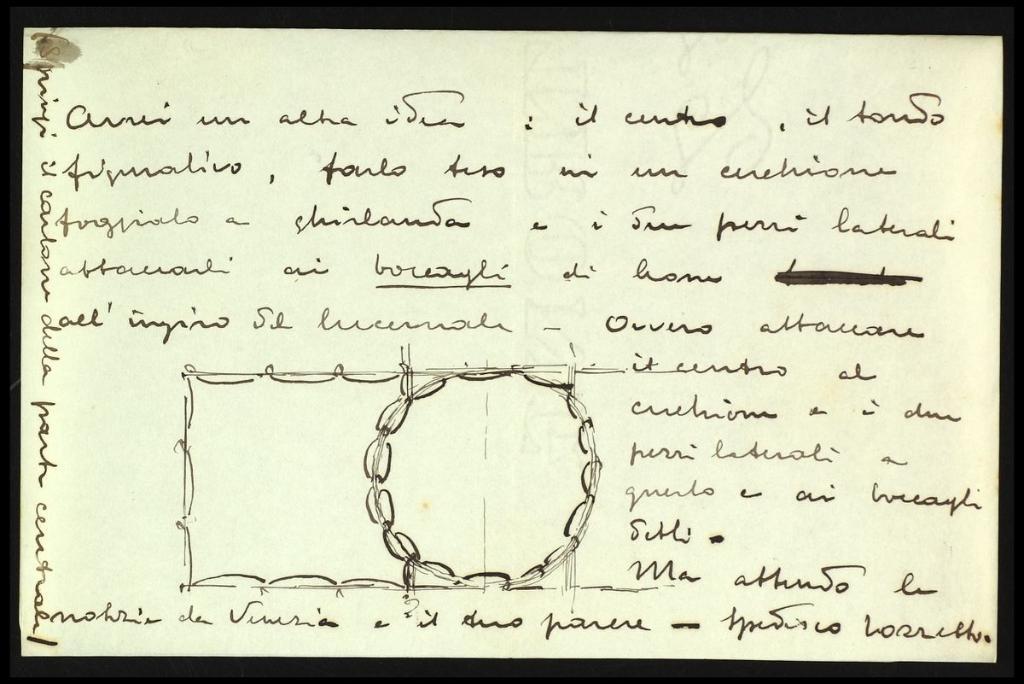 Avrei un altra idea : il centro, il tondo
figurativo, farlo teso in un cerchione
foggiato a ghirlanda e i due pezzi laterali
attaccarli ai boccagli di
all'ingiro del lucernale — Ovvero attaccare
il centro al
cerchione e i due
pezzi laterali a
questo e ai boccagli
detti -
Ma attendo le
notizie da Venezia e il tuo parere — spedisco bozzetto.
il cartone della parte centrale